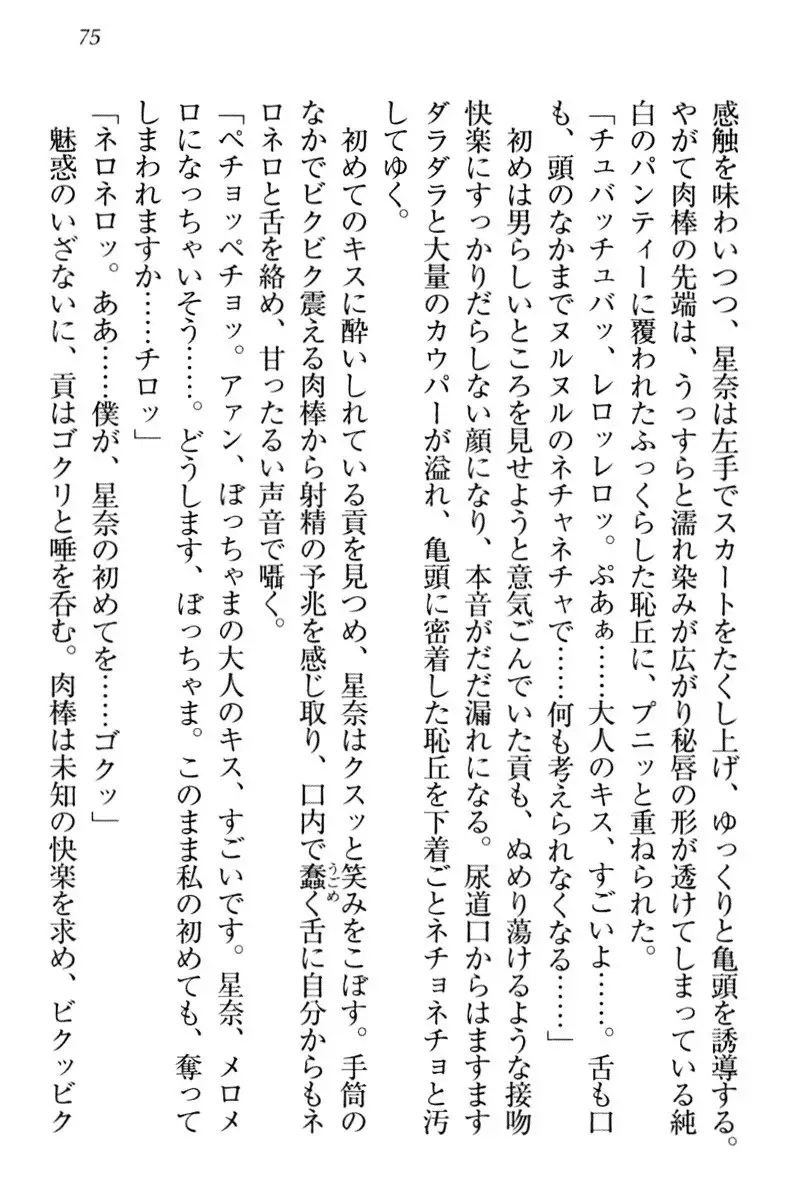 75
感触を味わいつつ、星奈は左手でスカートをたくし上げ、ゆっくりと亀頭を誘導する。
やがて肉棒の先端は、うっすらと濡れ染みが広がり秘唇の形が透けてしまっている純
白のパンティーに覆われたふっくらした恥丘に、プニッと重ねられた。
「チュバッチュバッ、レロッレロッ。ぷあぁ……大人のキス、すごいよ……。舌も口
も、頭のなかまでヌルヌルのネチャネチャで……何も考えられなくなる……」
初めは男らしいところを見せようと意気ごんでいた貢も、ぬめり蕩けるような接吻
快楽にすっかりだらしない顔になり、本音がだだ漏れになる。尿道口からはますます
ダラダラと大量のカウパーが溢れ、亀頭に密着した恥丘を下着ごとネチョネチョと汚
してゆく。
初めてのキスに酔いしれている貢を見つめ、星奈はクスッと笑みをこぼす。手筒の
なかでビクビク震える肉棒から射精の予兆を感じ取り、口内で蠢く舌に自分からもネ
うごめ
ロネロと舌を絡め、甘ったるい声音で囁く。
「ペチョッペチョッ。アァン、ぼっちゃまの大人のキス、すごいです。星奈、メロメ
ロになっちゃいそう……。どうします、ぼっちゃま。このまま私の初めても、奪って
しまわれますか……チロッ」
「ネロネロッ。ああ……僕が、星奈の初めてを……ゴクッ」
魅惑のいざないに、貢はゴクリと唾を呑む。肉棒は未知の快楽を求め、ビクッビク